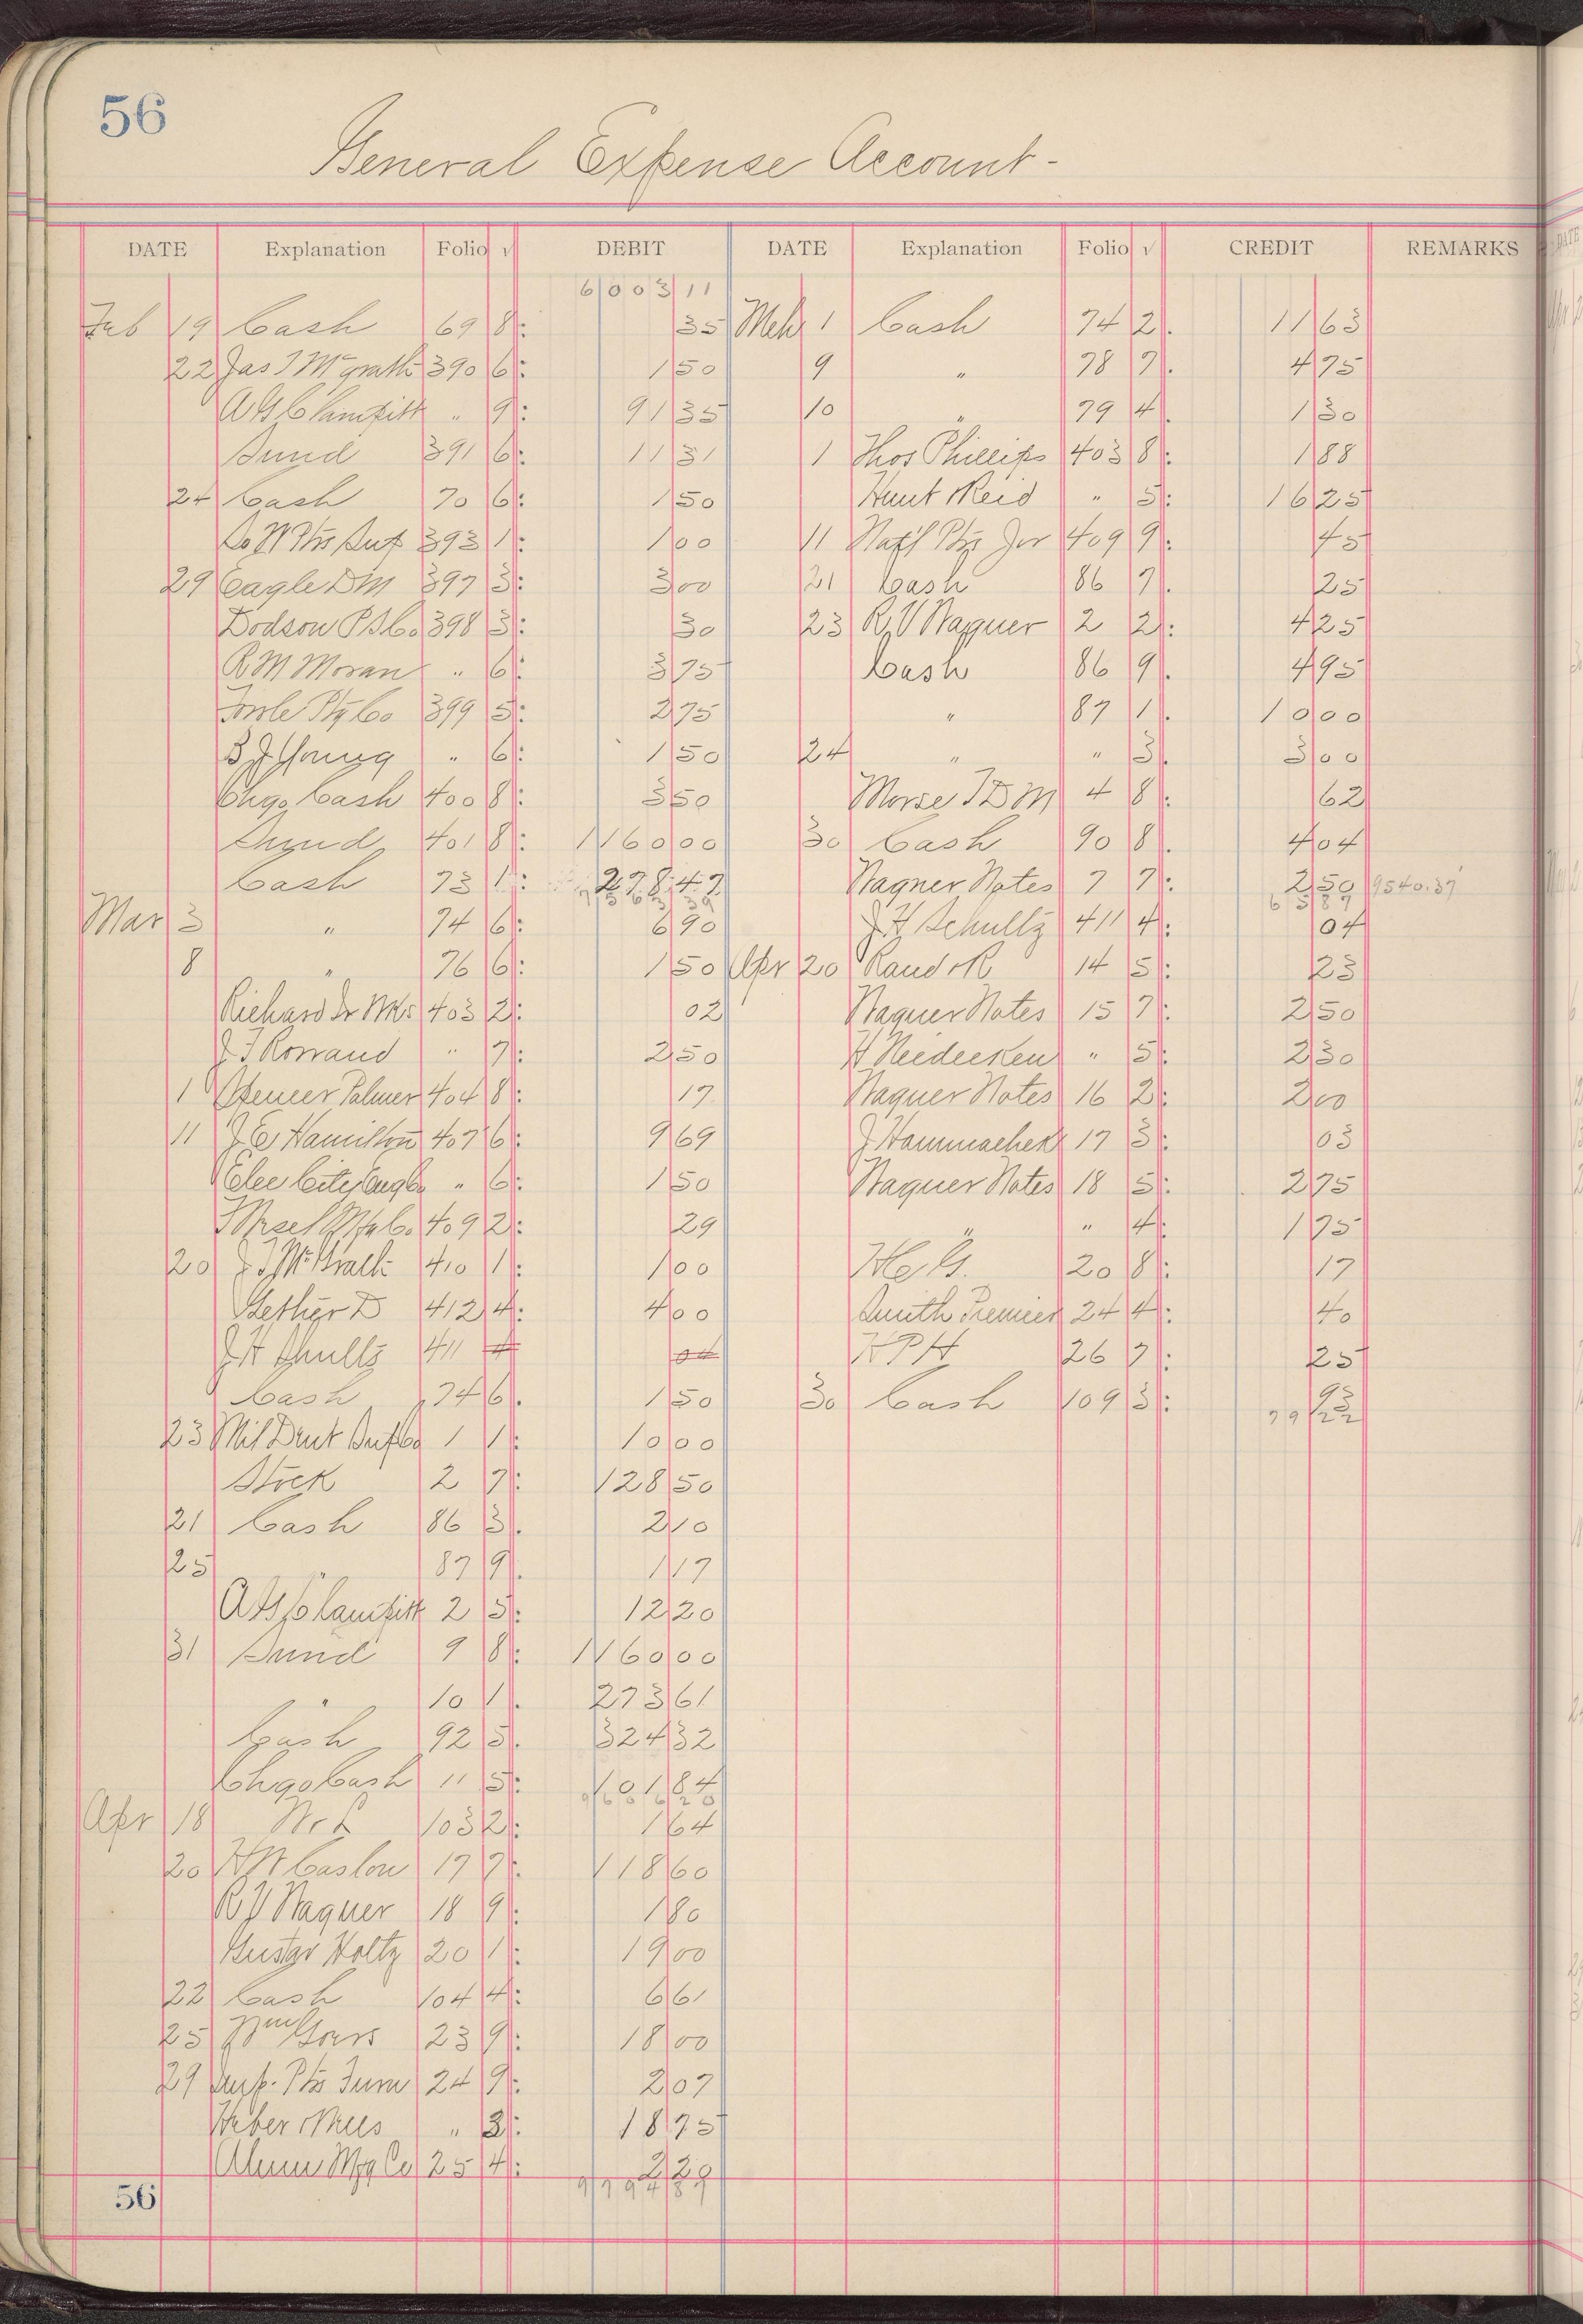 56
General Expense Account-
DATE Explanation Folio √ DEBIT DATE Explanation Folio √ CREDIT REMARKS
6003 11
Feb 19 Cash 69 8 35 Mch 1 Cash 74 2 11 63
22 Jas J McGrath 390 6 1 50 9 " 78 7 4 75
" 9 91 35 10 " 79 4 1 30
Sund 391 6 11 31 1 Thos Phillips 403 8 1 88
24 Cash 70 6 1 50 Hunt & Reid " 5 16 25
393 1 1 00 11 Nat'l Ptg Jor 409 9 45
29 Eagle D M 397 3 3 00 21 Cash 86 7 25
Dodson P S Co 398 3 30 23 R V Wagner 2 2 4 25
R M Moran " 6 3 75 Cash 86 9 4 95
Ptg Co 399 5 2 75 " 87 1 10 00
Young " 6 1 50 24 " " 3 3 00
Chgo Cash 400 8 3 50 Morse T D M 4 8 62
Sund 401 8 1160 00 30 Cash 90 8 4 04
Cash 73 1 278 47 Wagner Notes 7 7 2 50 9540.37
Mar 3 " 74 6 6 90 J H Schultz 411 4 04
8 " 76 6 1 50 Apr 20 Rand & R 14 5 23
403 2 02 Wagner Notes 15 7 2 50
" 7 2 50 " 5 2 30
1 Spencer Palmer 404 8 17 Wagner Notes 16 2 2 00
11 J E Hamilton 407 6 9 69 J Hammacher 17 3 03
Elec City Eng Co " 6 1 50 Wagner Notes 18 5 2 75
409 2 29 " " 4 1 75
20 J J McGrath 410 1 1 00 20 8 17
412 4 4 00 Smith Premier 24 4 40
J H Shultz 411 4 04 H P H 26 7 25
Cash 74 6 1 50 30 Cash 109 3 93
79 22
23 1 1 10 00
Stock 2 7 128 50
21 Cash 86 3 2 10
25 " 87 9 1 17
2 5 12 20
31 Sund 9 8 1160 00
" 10 1 273 61
Cash 92 5 324 32
Chgo Cash 11 5 101 84
Apr 18 103 2 1 64
20 H W Caslon 17 7 118 60
R V Wagner 18 9 1 80
Gustav Holtz 20 1 19 00
22 Cash 104 4 6 61
25 23 9 18 00
29 24 9 2 07
" 3 18 75
Alum Mfg Co 25 4 2 20
9794 89
56